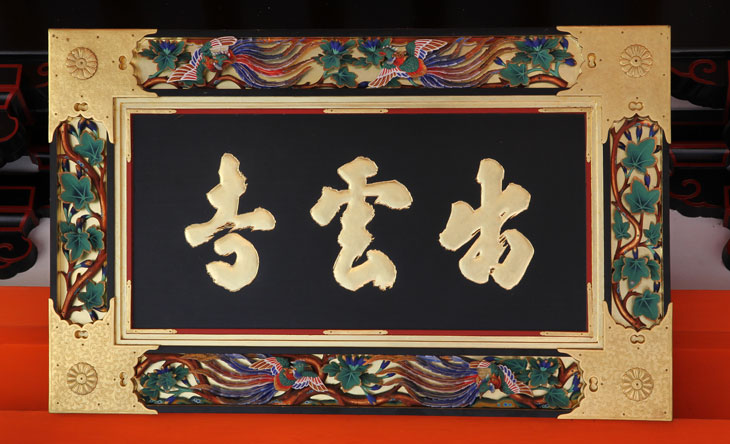 出雲寺